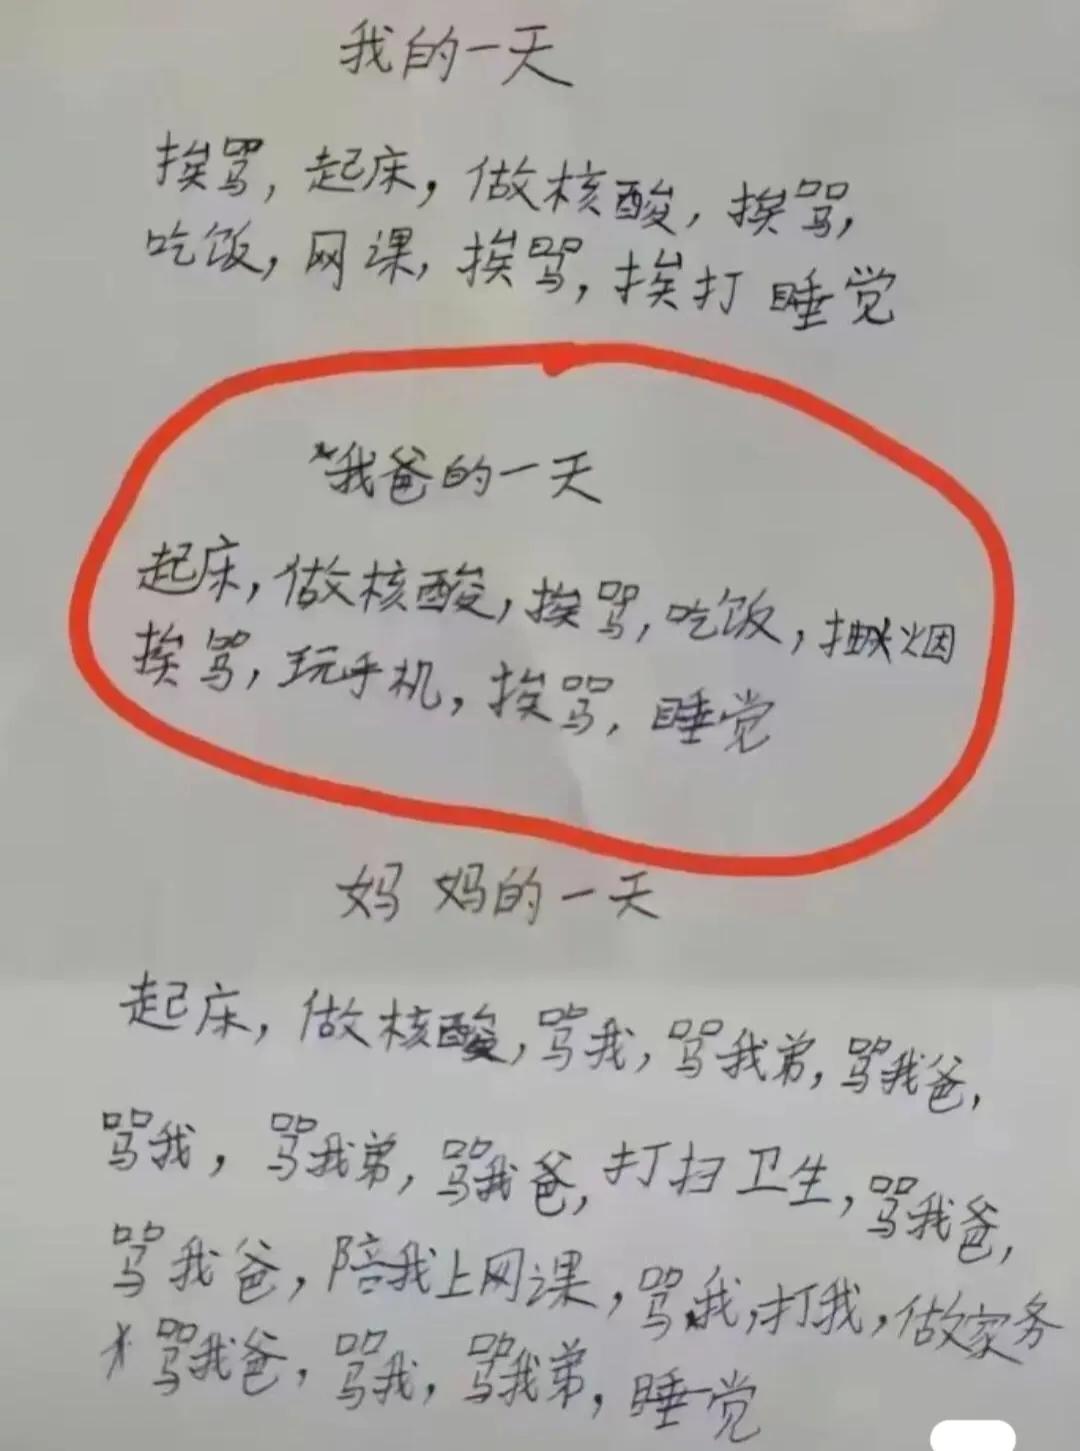 我的一天
挨骂，起床，做核酸，挨骂，
吃饭，网课，挨骂，挨打 睡觉
我爸的一天
起床，做核酸，挨骂，吃饭，抽烟
挨骂，玩手机，挨骂，睡觉
妈妈的一天
起床，做核酸，骂我，骂我弟，骂我爸，
骂我，骂我弟，骂我爸，打扫卫生，骂我爸，
骂我爸，陪我上网课，骂我，打我，做家务
骂我爸，骂我，骂我弟，睡觉